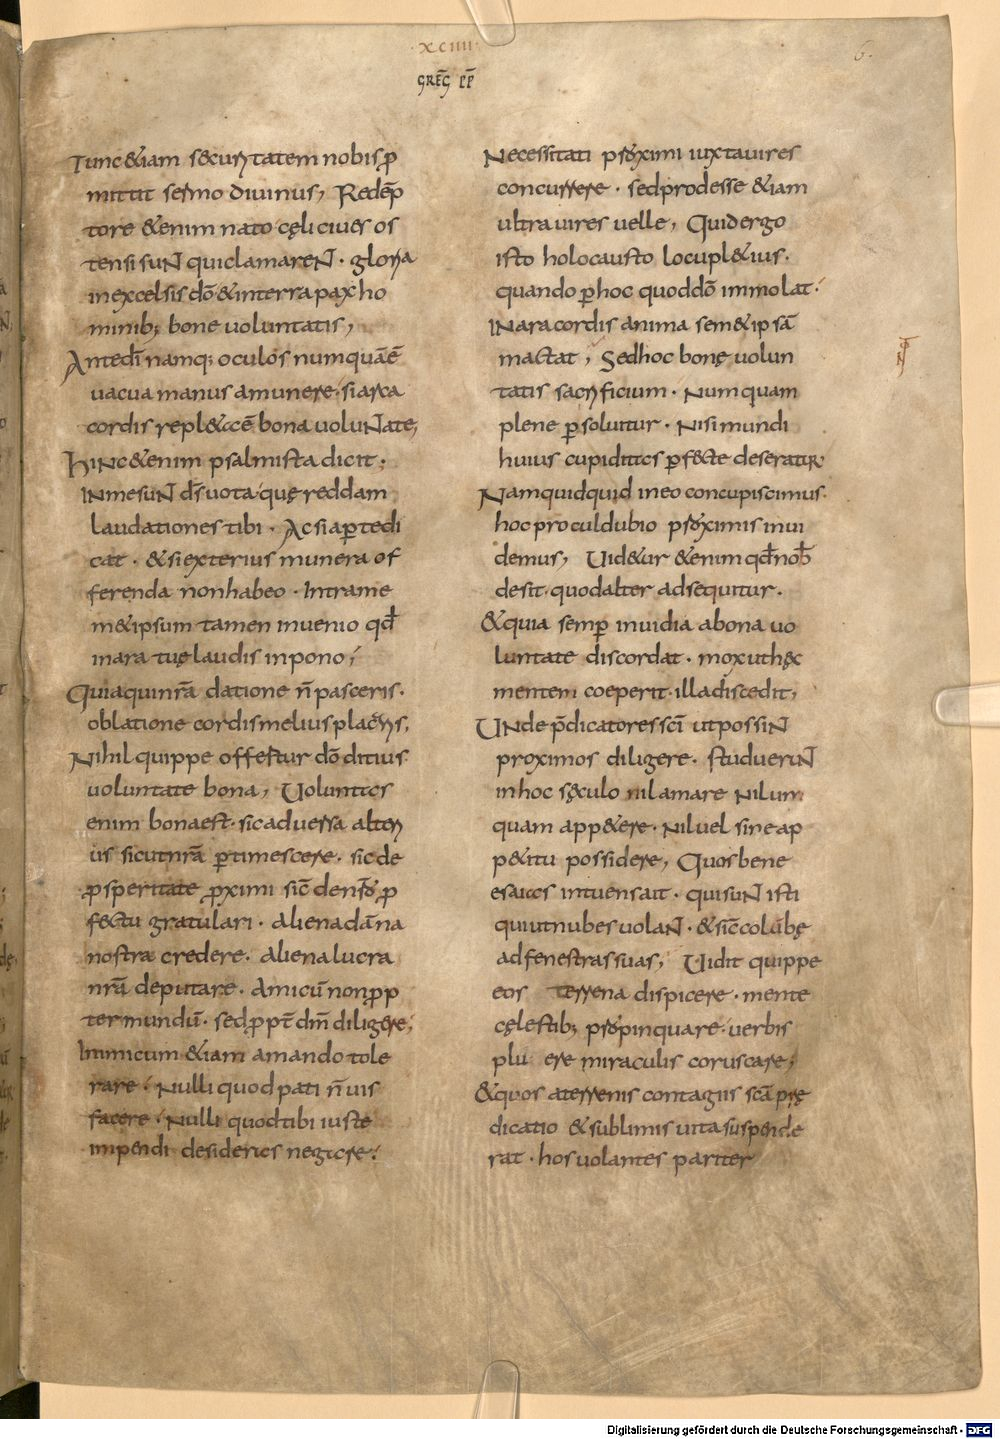 ·xciiii·
6·
GREḠ P̄P̄
Tunc &iam s&curitatem nobis ꝓ
mittit sermo diuinus, Redēp
tore &enim nato cęli ciues os
tensi suN qui clamareN · gloria
in excelsis dō & in terra pax ho
minib; bone uoluntatis,
Ante dī namq; oculos numquā ē
uacua manus a munere · si arca
cordis repl&a ē bona uoluNtate;
HiNc &enim psalmista dicit;
IN me suN dś uota que reddam
laudationes tibi · Ac si aꝑte di
cat · & si exterius munera of
ferenda non habeo · Intra me
m&ipsum tamen inuenio qđ
in ara tuę laudis inpono;
Quia qui nr̄a datione n̄ pasceris ·
oblatione cordis melius placaris,
Nihil quippe offertur dō ditius
uoluntate bona, Uoluntas
enim bona est · sic aduersa alteri
us sicut nr̄a ꝑtimescere · sic de
ꝓsperitate ꝓximi sic̄ de nrō ꝓ
fectu gratulari · aliena dāna
nostra credere · aliena lucra
nr̄a deputare · amicū non ꝓp
ter mundū · sed ꝓpt̄ dm̄ diligere,
Inimicum &iam amando tole
rare · Nulli quod pati n̄ uis
facere · Nulli quod tibi iuste
impendi desideras negare;
Necessitati proximi iuxta uires
concurrere · sed prodesse &iam
ultra uires uelle, Quid ergo
isto holocausto locupl&ius ·
quando ꝑ hoc quod dō immolat ·
IN ara cordis anima sem&ipsā
mactat, Sed hoc bonę uolun
tatis sacrificium · Numquam
plene ꝑsoluitur · Nisi mundi
huius cupiditas ꝑfecte deseratur
Nam quidquid in eo concupiscimus ·
hoc procul dubio proximis inui
demus, Uid&ur &enim qđ nob̄
desit · quod alter adsequitur ·
& quia semꝑ inuidia a bona uo
luntate discordat · mox ut hęc
mentem coeperit · illa discedit,
UNde p̄dicatores sc̄i ut possiN
proximos diligere · studueruN
in hoc sęculo nil amare Nil um
quam app&ere · Nil uel sine ap
p&itu possidere, Quos bene
esaias intuens ait · qui suN isti
qui ut nubes uolaN · & sic̄ colūbę
ad fenestras suas, Uidit quippe
eos terrena dispicere · mente
cęlestib; propinquare · uerbis
plu ere miraculis coruscare;
& quos a terrenis contagiis scā prę
dicatio & sublimis uita suspende
rat · hos uolantes pariter
Digitalisierung gefördert durch die Deutsche Forschungsgemeinschaft - DFG